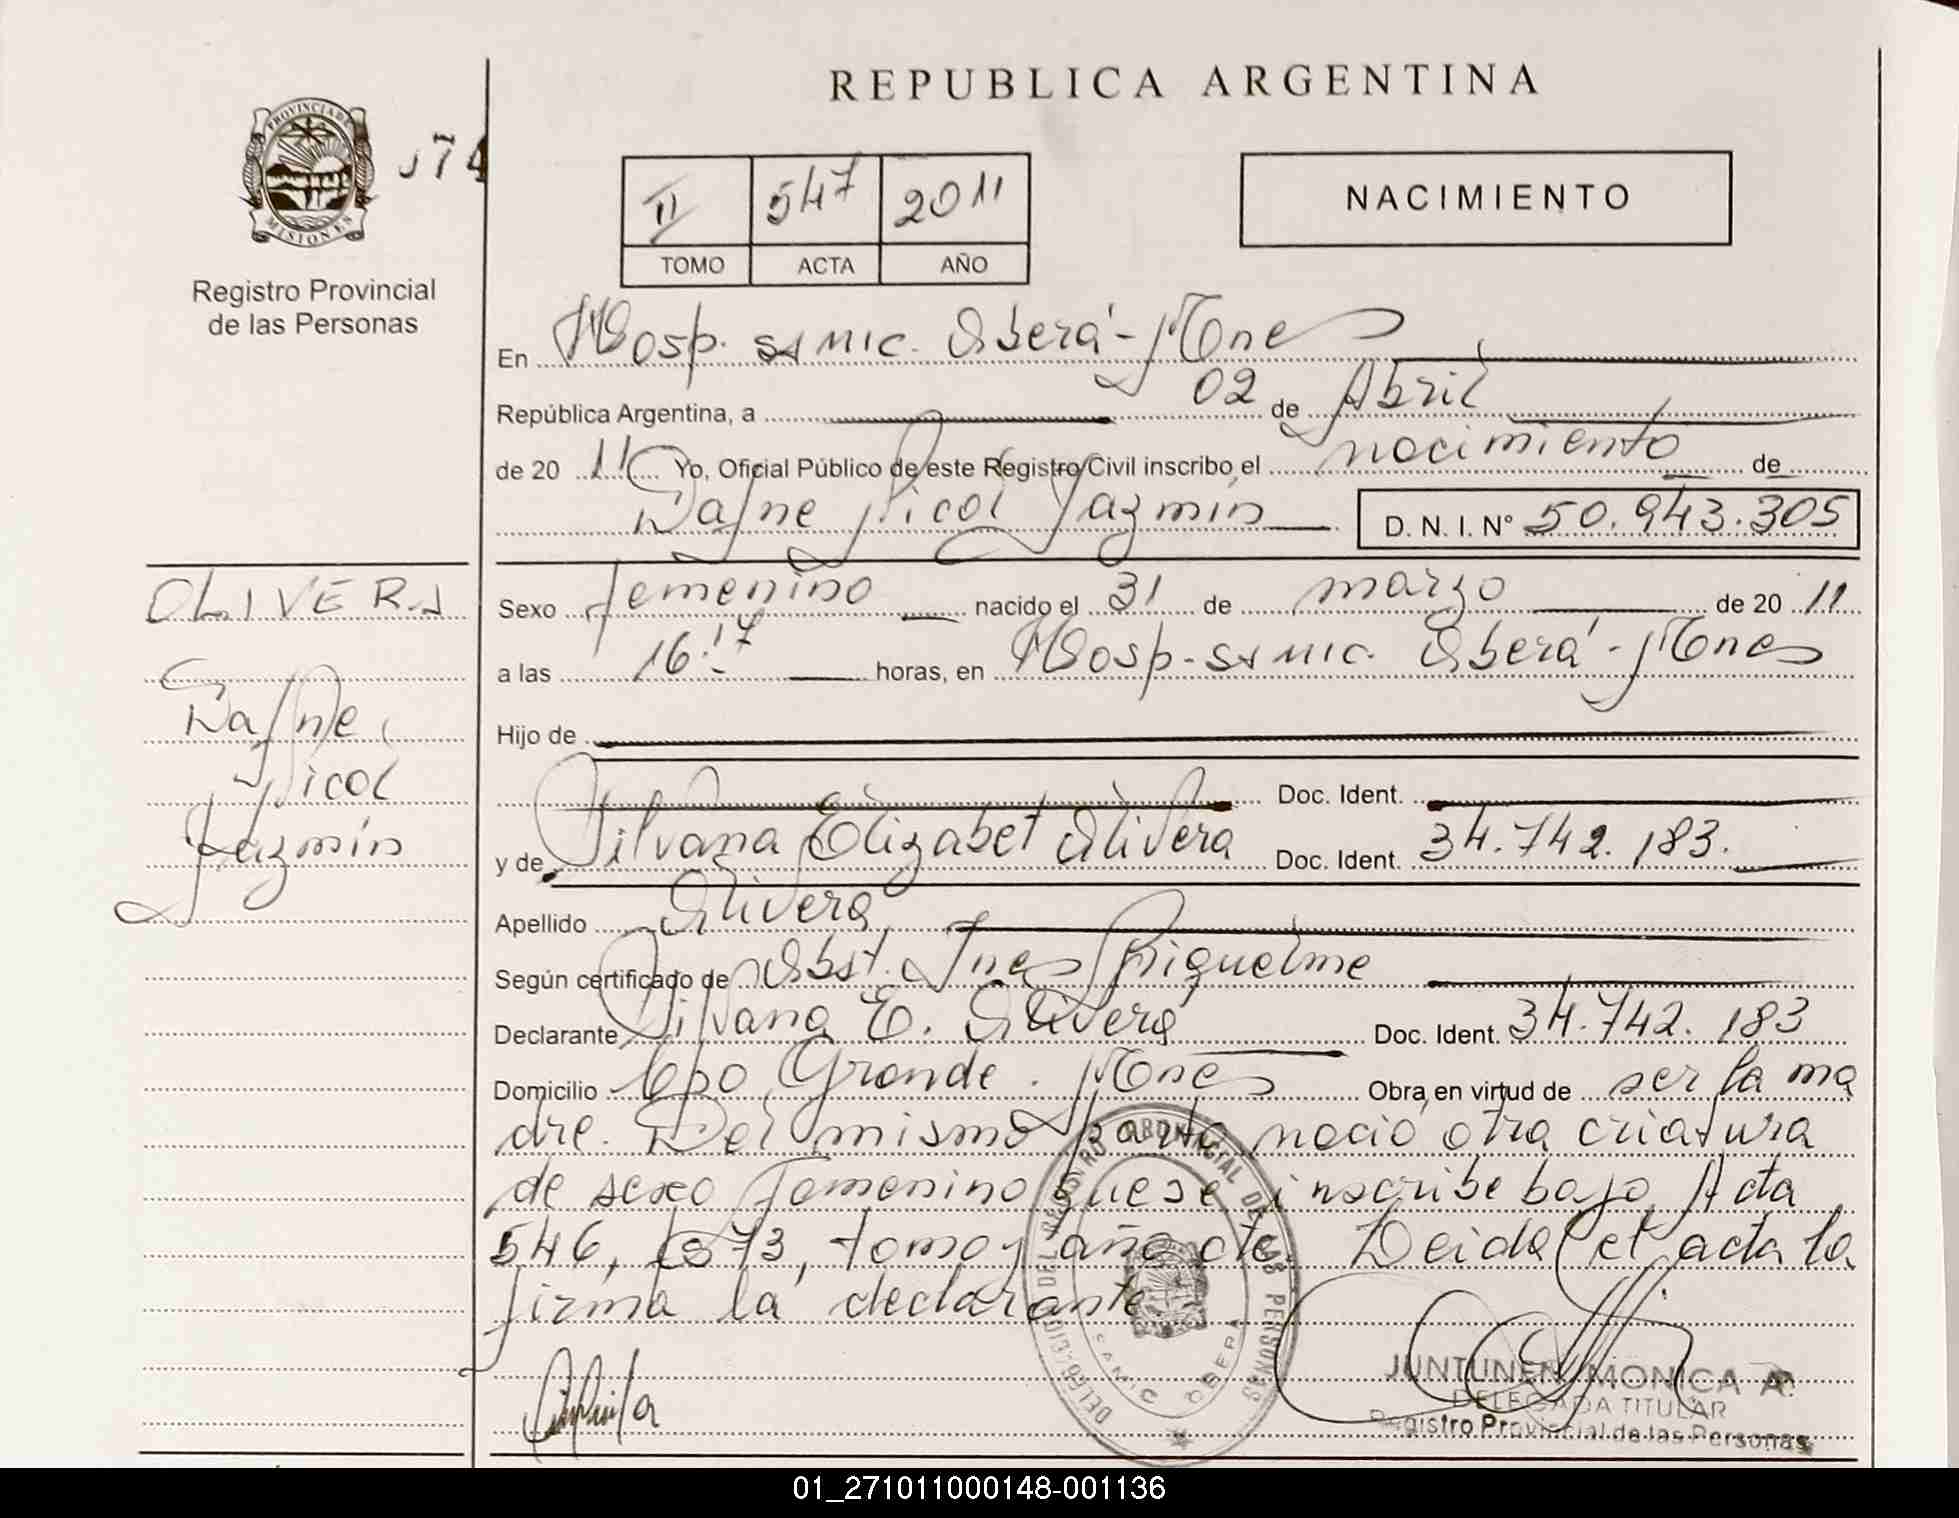 REPUBLICA ARGENTINA
PROVINCIA DE
MISIONES
574
Registro Provincial
de las Personas
II 547 2011
TOMO ACTA AÑO
NACIMIENTO
En Hosp. SAMIC. Oberá - Mnes
República Argentina, a 02 de Abril
de 20 11 Yo, Oficial Público de este Registro Civil inscribo el nacimiento de
Dafne Nicol Jazmín D. N. I. Nº 50.943.305
OLIVERA
Dafne
Nicol
Jazmín
Sexo femenino nacido el 31 de marzo de 20 11
a las 16:17 horas, en Hosp. SAMIC. Oberá - Mnes
Hijo de
Doc. Ident.
y de Silvana Elizabet Olivera Doc. Ident. 34.742.183.
Apellido Olivera
Según certificado de Obst. Ines Riquelme
Declarante Silvana E. Olivera Doc. Ident. 34.742.183
Domicilio Cpo Grande. Mnes Obra en virtud de ser la ma
dre. Del mismo parto nació otra criatura
de sexo femenino que se inscribe bajo Acta
546, Fo 73, tomo y año cte. Leida el acta la
firma la declarante.
DELEGACION DEL REGISTRO PROVINCIAL DE LAS PERSONAS
SAMIC OBERA
JUNTUNEN MONICA A.
DELEGADA TITULAR
Registro Provincial de las Personas
01_271011000148-001136